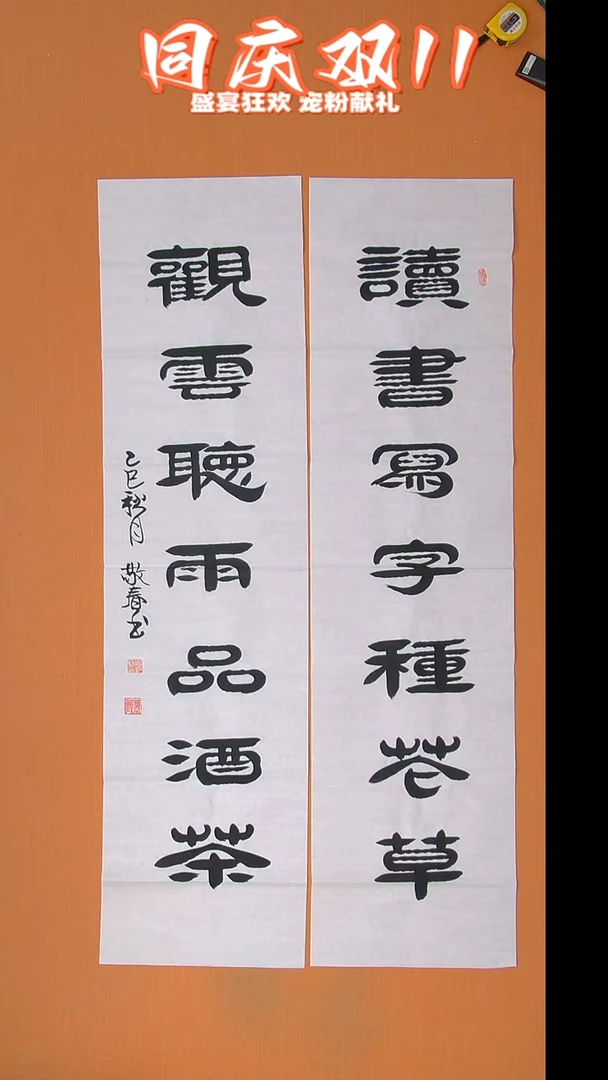 同庆双11
盛宴狂欢 宠粉献礼
讀書寫字種花草
觀雲聽雨品酒茶
乙巳秋月 敬春书